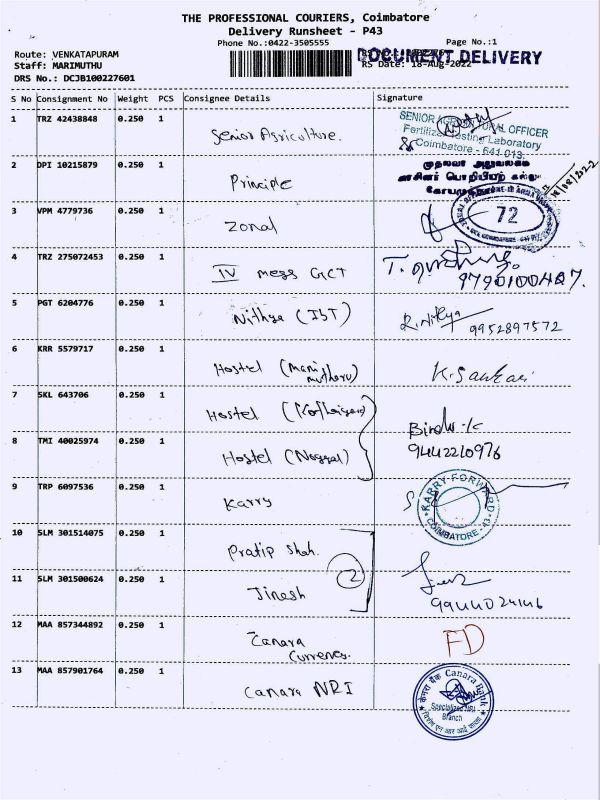 THE PROFESSIONAL COURIERS, Coimbatore
Delivery Runsheet - P43
Phone No.:0422-3505555
Page No.:1
Route: VENKATAPURAM
Staff: MARIMUTHU
DRS No.: DCJB100227601
DOCUMENT DELIVERY
RS Date: 18-Aug-2022
S No Consignment No Weight PCS Consignee Details Signature
1 TRZ 42438848 0.250 1 Senior Agriculture.
SENIOR AGRICULTURAL OFFICER
Fertilizer Testing Laboratory
Coimbatore - 641 013.
2 DPI 10215879 0.250 1 Principle
3 VPM 4779736 0.250 1 Zonal
72
4 TRZ 275072453 0.250 1 IV mess GCT
5 PGT 6204776 0.250 1 Nithya (IST) R.Nithya 9952897572
6 KRR 5579717 0.250 1 Hostel K. Sankari
7 SKL 643706 0.250 1 Hostel
8 TMI 40025974 0.250 1 Hostel (Noyyal) 9442210976
9 TRP 6097536 0.250 1 Karry
KARRY FORWARD
COIMBATORE - 43
10 SLM 301514075 0.250 1 Pratip Shah.
2
11 SLM 301500624 0.250 1 Jinesh
12 MAA 857344892 0.250 1 Canara Currency. FD
13 MAA 857901764 0.250 1 Canara NRI
केनरा बैंक Canara Bank
Specialized NRI
Branch